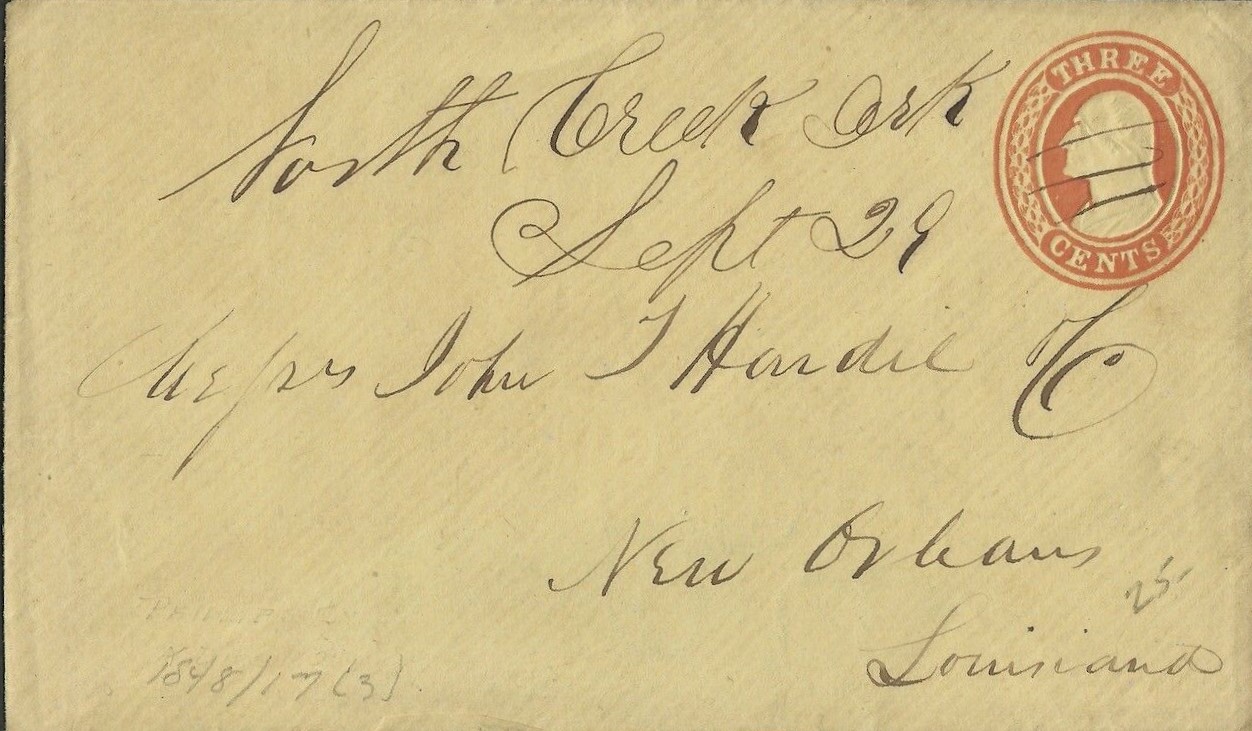 North Creek Ark
Sept 29
THREE
CENTS
Messrs John T Hardie & Co
New Orleans
Louisiana
25
1848/17 (3)